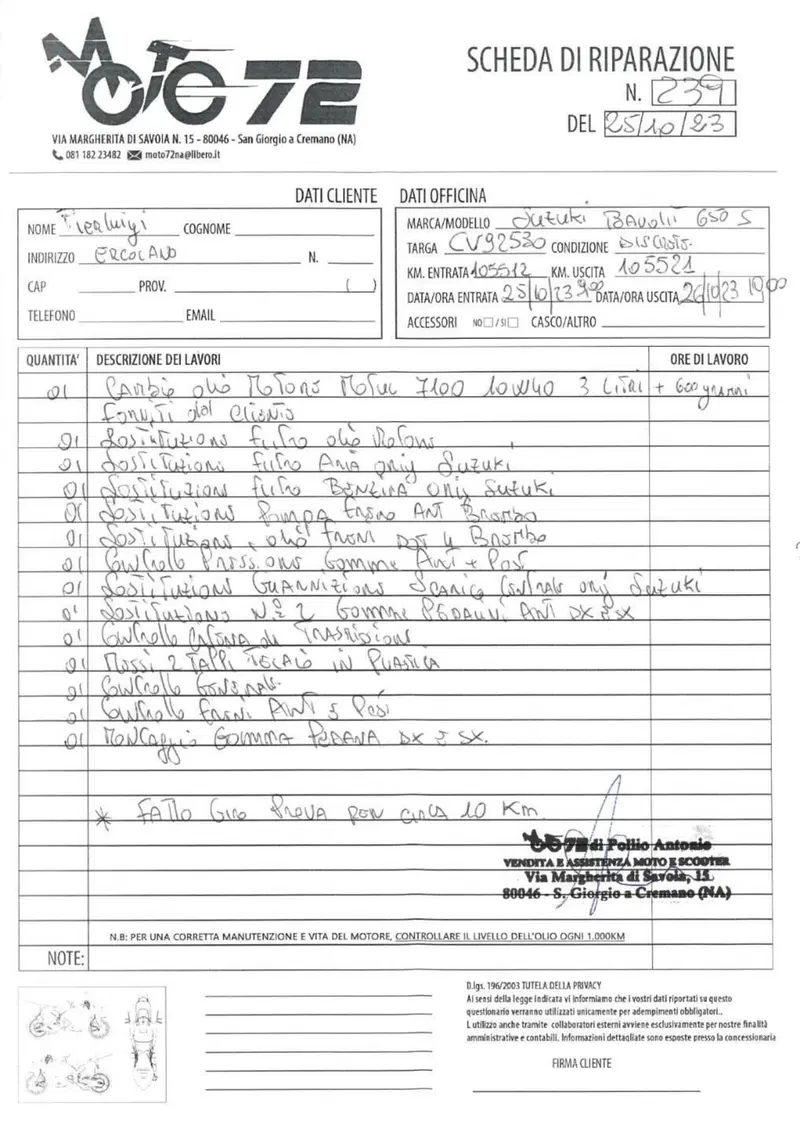 MOTO 72
VIA MARGHERITA DI SAVOIA N. 15 - 80046 - San Giorgio a Cremano (NA)
081 182 23482 moto72na@libero.it
SCHEDA DI RIPARAZIONE
N. 239
DEL 25/10/23
DATI CLIENTE
NOME Pierluigi COGNOME
INDIRIZZO ERCOLANO N.
CAP PROV. ( )
TELEFONO EMAIL
DATI OFFICINA
MARCA/MODELLO Suzuki 650 S
TARGA CV92530 CONDIZIONE
KM. ENTRATA 105512 KM. USCITA 105521
DATA/ORA ENTRATA 25/10/23 9:00 DATA/ORA USCITA 26/10/23 10,00
ACCESSORI NO □ / SI □ CASCO/ALTRO
QUANTITA' DESCRIZIONE DEI LAVORI ORE DI LAVORO
01 Cambio olio Motore Motul 7100 10W40 3 Litri + 600 grammi
Forniti dal Cliente
01 Sostituzione filtro olio Motore
01 Sostituzione filtro Aria orig Suzuki
01 Sostituzione filtro BENZINA orig Suzuki
01 Sostituzione Pompa freno ANT Brembo
01 Sostituzione olio freni DOT 4 Brembo
01 Controllo Pressione Gomme Ant + Post
01 Sostituzione Guarnizione Scarico Centrale orig Suzuki
01 Sostituzione N.2 Gomme PEDALINI ANT DX E SX
01 Controllo CATENA di TRASMISSIONE
01 Messi 2 TAPPI TELAIO in PLASTICA
01 Controllo GENERALE
01 Controllo freni ANT E Post
01 MONTAGGIO GOMMA PEDANA DX E SX.
* FATTO Giro PROVA PER circa 10 Km
MOTO 72 di Pollio Antonio
VENDITA E ASSISTENZA MOTO E SCOOTER
Via Margherita di Savoia, 15
80046 - S. Giorgio a Cremano (NA)
N.B: PER UNA CORRETTA MANUTENZIONE E VITA DEL MOTORE, CONTROLLARE IL LIVELLO DELL'OLIO OGNI 1.000KM
NOTE:
D.lgs. 196/2003 TUTELA DELLA PRIVACY
Ai sensi della legge indicata vi informiamo che i vostri dati riportati su questo
questionario verranno utilizzati unicamente per adempimenti obbligatori..
L utilizzo anche tramite collaboratori esterni avviene esclusivamente per nostre finalità
amministrative e contabili. Informazioni dettagliate sono esposte presso la concessionaria
FIRMA CLIENTE